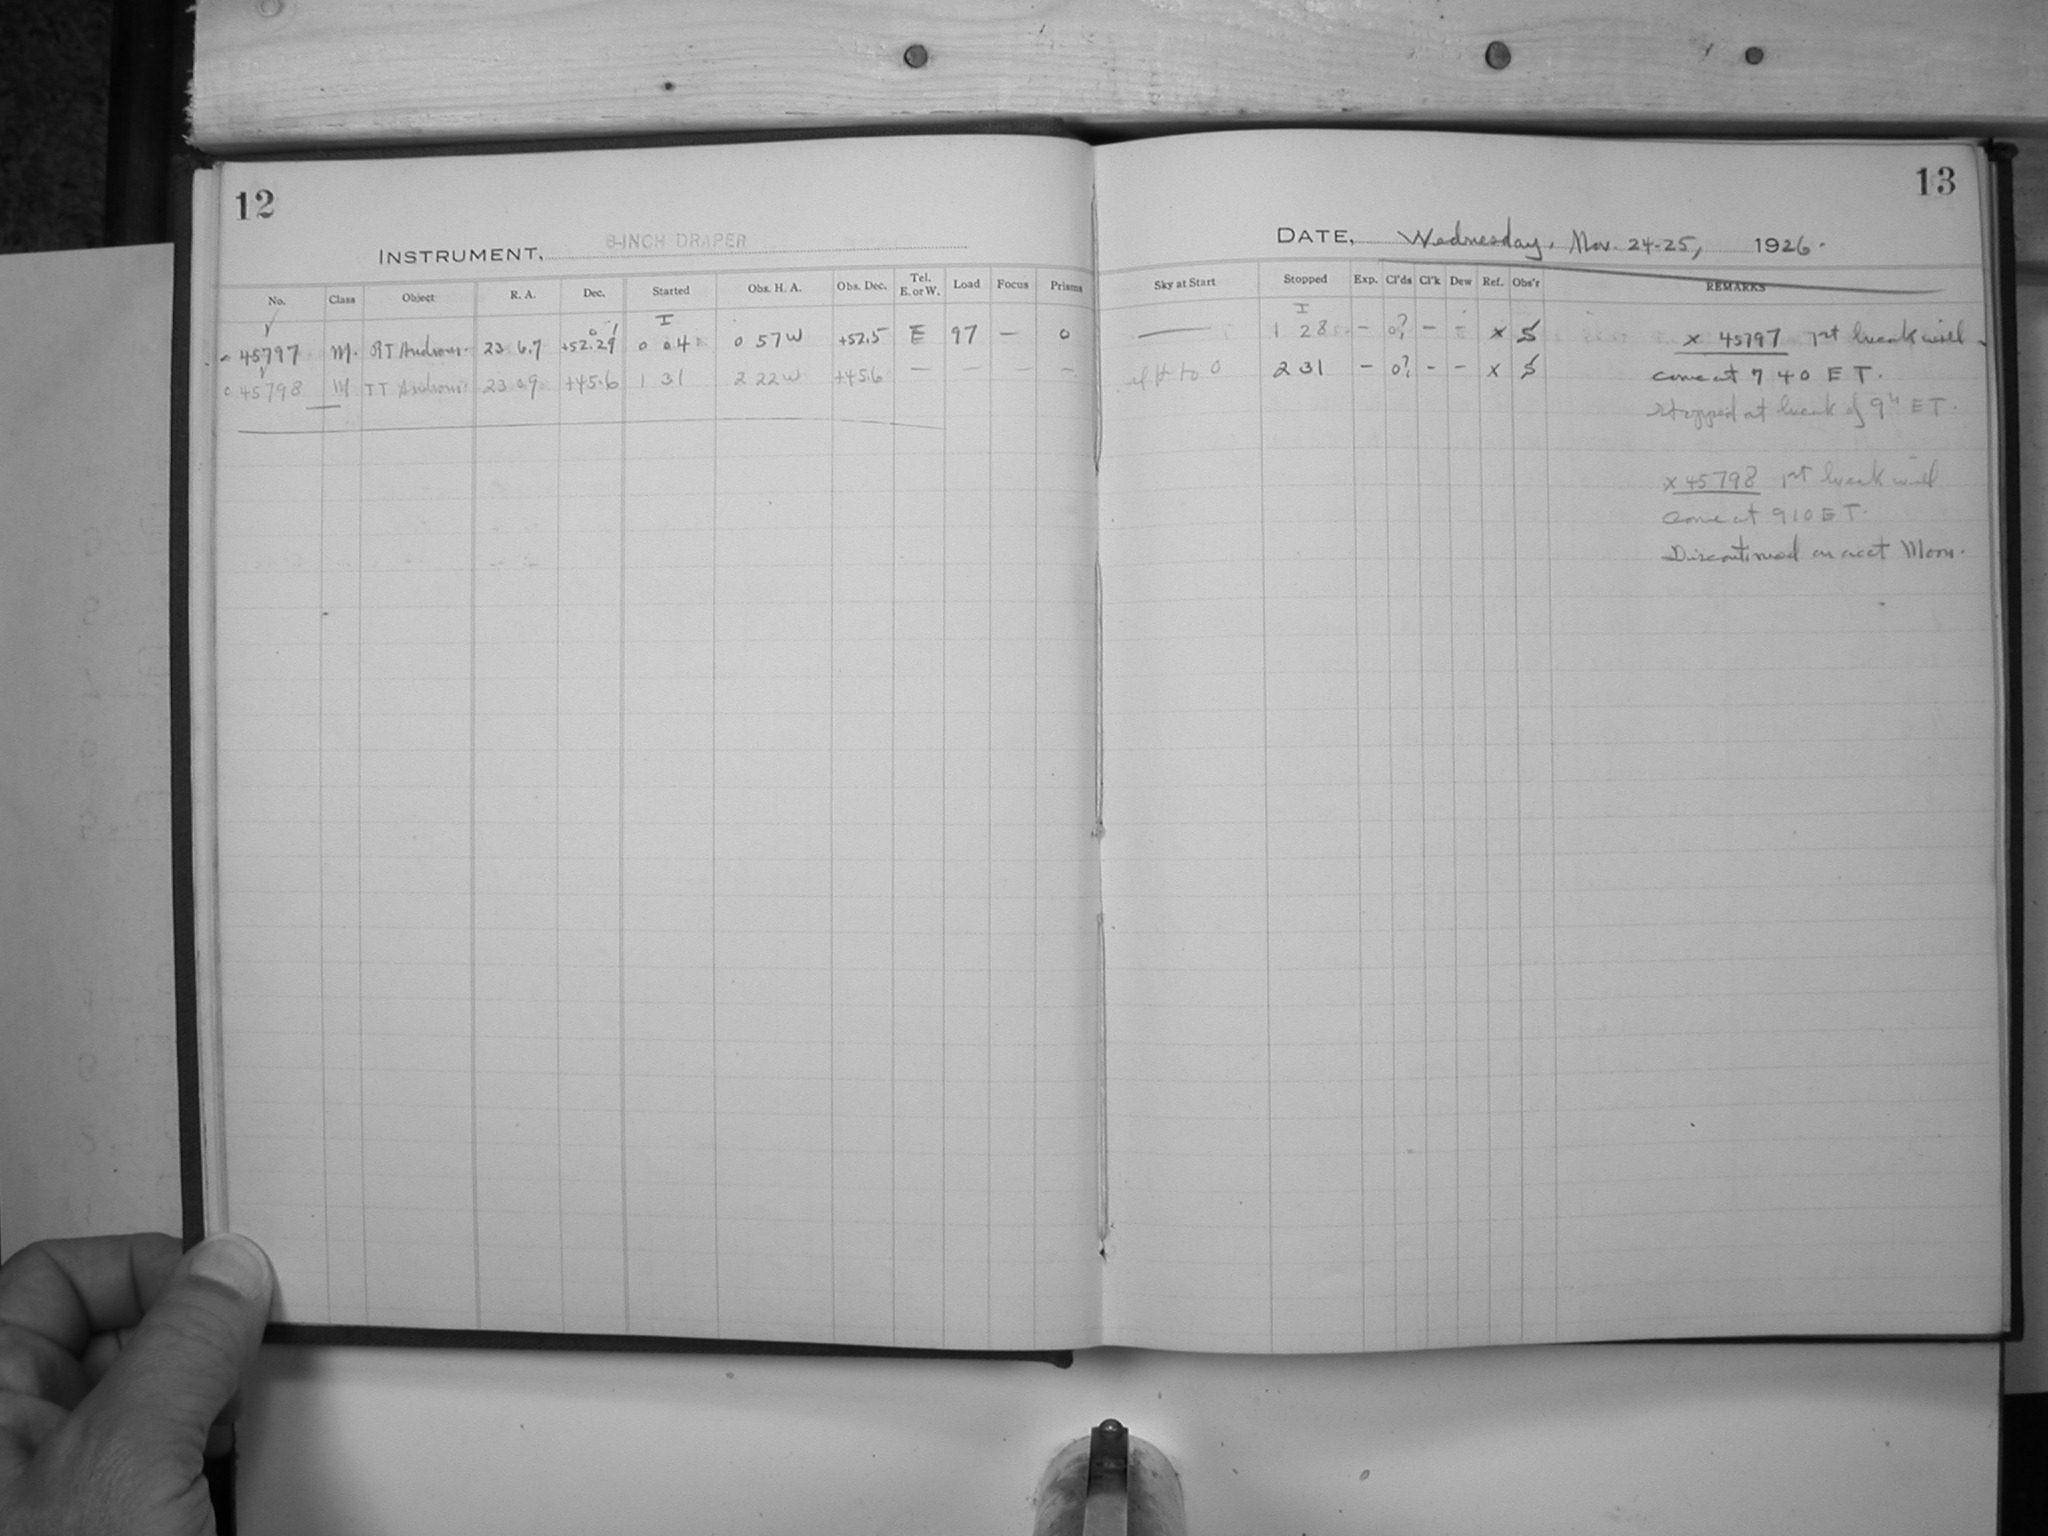 12
INSTRUMENT, 8-INCH DRAPER
No. Class Object R. A. Dec. Started Obs. H. A. Obs. Dec. Tel. E. or W. Load Focus Prisms
45797 M. RT Androm. 23 6.7 +52.29 0 04 0 57 W +52.5 E 97 — 0
45798 M TT Androm. 23 09 +45.6 1 31 2 22 W +45.6 — — — —
13
DATE, Wednesday, Nov. 24-25, 1926.
Sky at Start Stopped Exp. Cl'ds Cl'k Dew Ref. Obs'r REMARKS
— 1 28 — 0? — x S x 45797 1st break will
2 31 — 0? — — x S come at 7 40 E T.
Stopped at break of 9h E T.
x 45798 1st break will
come at 9 10 E T.
Discontinued on acct Moon.